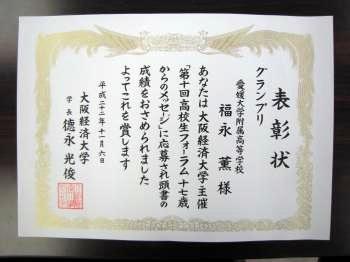 表彰状
グランプリ
愛媛大学附属高等学校
福永薫様
あなたは大阪経済大学主催
「第十回高校生フォーラム十七歳
からのメッセージ」に応募され頭書の
成績をおさめられました
よってこれを賞します
平成二十二年十一月六日
大阪経済大学
学長 德永光俊